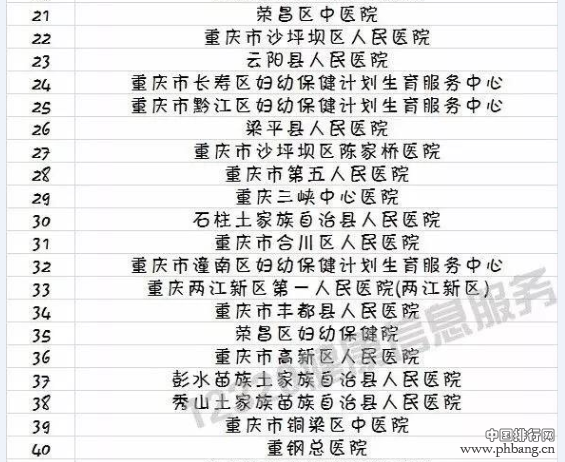 21 荣昌区中医院
22 重庆市沙坪坝区人民医院
23 云阳县人民医院
24 重庆市长寿区妇幼保健计划生育服务中心
25 重庆市黔江区妇幼保健计划生育服务中心
26 梁平县人民医院
27 重庆市沙坪坝区陈家桥医院
28 重庆市第五人民医院
29 重庆三峡中心医院
30 石柱土家族自治县人民医院
31 重庆市合川区人民医院
32 重庆市潼南区妇幼保健计划生育服务中心
33 重庆两江新区第一人民医院(两江新区)
34 重庆市丰都县人民医院
35 荣昌区妇幼保健院
36 重庆市高新区人民医院
37 彭水苗族土家族自治县人民医院
38 秀山土家族苗族自治县人民医院
39 重庆市铜梁区中医院
40 重钢总医院
12320健康信息服务
中国排行网
www.phbang.cn